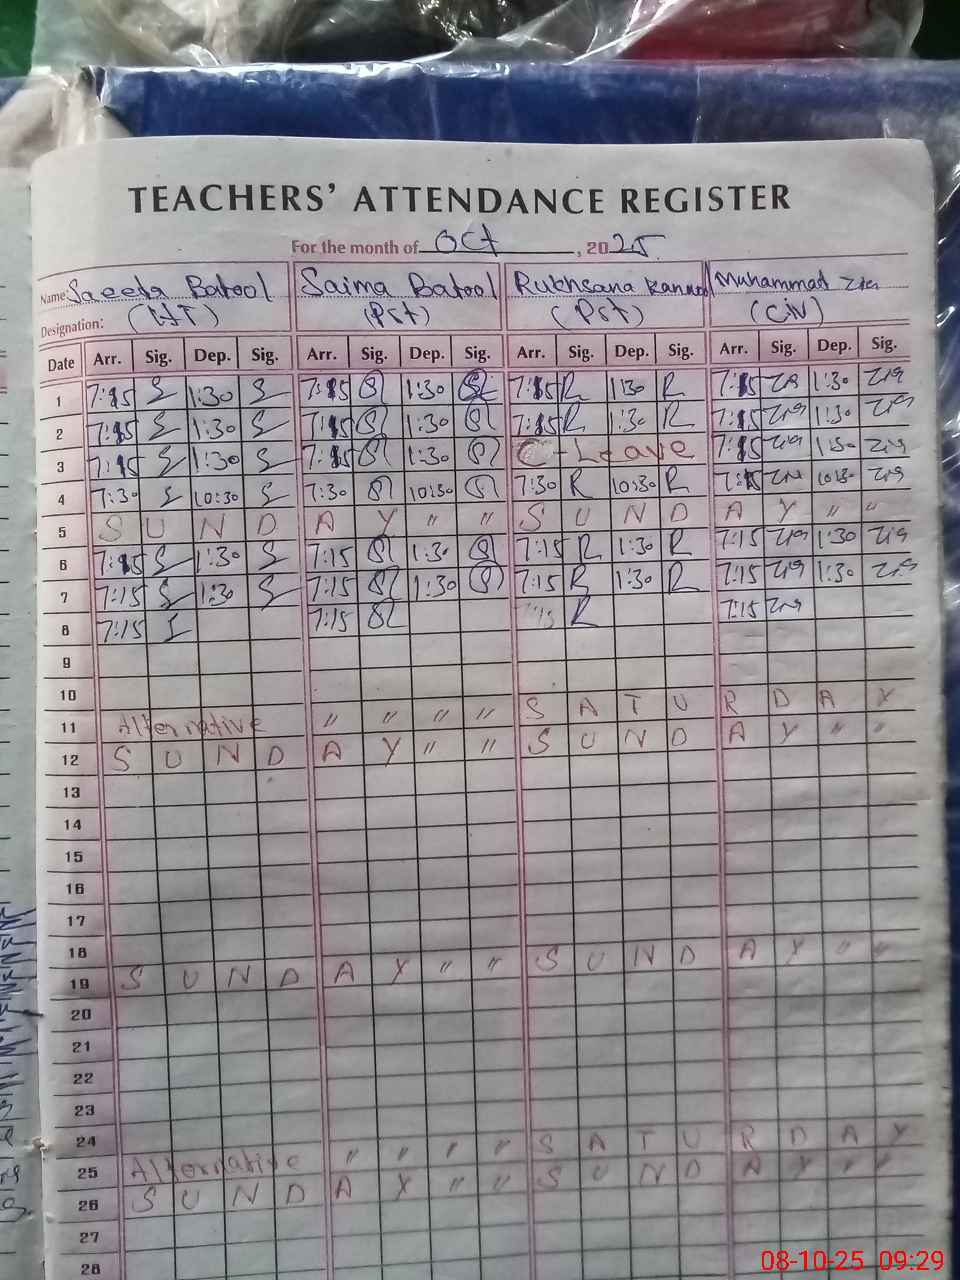 TEACHERS' ATTENDANCE REGISTER
For the month of Oct, 2025.
Name: Saeeda Batool Saima Batool Rukhsana Muhammad Zia
Designation: (PST) (PST) (CIV)
Date Arr. Sig. Dep. Sig. Arr. Sig. Dep. Sig. Arr. Sig. Dep. Sig. Arr. Sig. Dep. Sig.
1 7:15 S 1:30 S 7:15 S 1:30 S 7:15 R 1:30 R 7:15 Zia 1:30 Zia
2 7:15 S 1:30 S 7:15 S 1:30 S 7:15 R 1:30 R 7:15 Zia 1:30 Zia
3 7:15 S 1:30 S 7:15 S 1:30 S C-Leave 7:15 Zia 1:30 Zia
4 7:30 S 10:30 S 7:30 S 10:30 S 7:30 R 10:30 R Zia 10:30 Zia
5 S U N D A Y " " S U N D A Y " "
6 7:15 S 1:30 S 7:15 S 1:30 S 7:15 R 1:30 R 7:15 Zia 1:30 Zia
7 7:15 S 1:30 S 7:15 S 1:30 S 7:15 R 1:30 R 7:15 Zia 1:30 Zia
8 7:15 S 7:15 S 7:15 R 7:15 Zia
9
10
11 Alternative " " " " S A T U R D A Y
12 S U N D A Y " " S U N D A Y " "
13
14
15
16
17
18
19 S U N D A Y " " S U N D A Y " "
20
21
22
23
24
25 Alternative " " " " S A T U R D A Y
26 S U N D A Y " " S U N D A Y " "
27
28
08-10-25 09:29